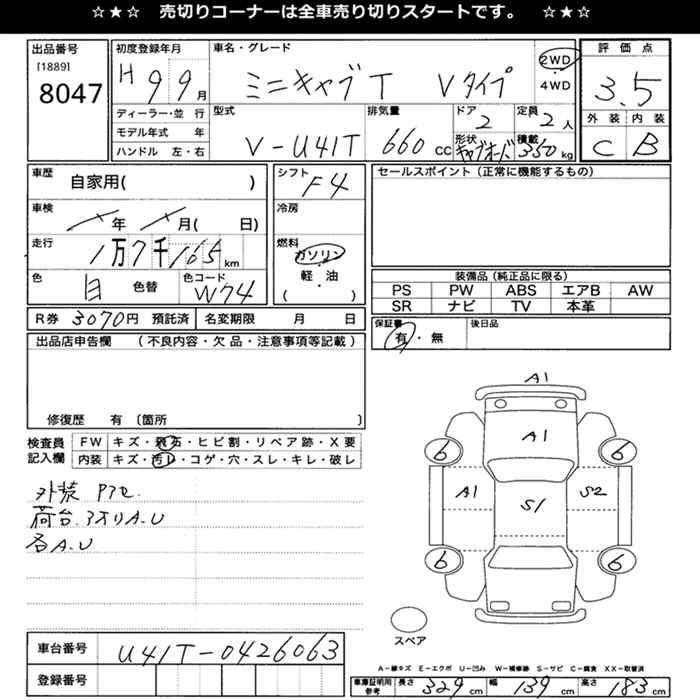 ☆★☆ 売切りコーナーは全車売り切りスタートです。 ☆★☆
出品番号
[1889]
8047
初度登録年月
H 9 9月
ディーラー・並 行
モデル年式 年
ハンドル 左・右
車名・グレード
ミニキャブT Vタイプ
2WD
4WD
型式
V-U41T
排気量
660 cc
ドア
2
定員
2人
形状
積載
350kg
評 価 点
3.5
外 装 内 装
C B
車歴
自家用( )
車検
年 月( 日)
走行
1万7千165km
色
白 色替
色コード
W74
シフト
F4
冷房
燃料
ガソリン
軽・油
( )
セールスポイント(正常に機能するもの)
装備品(純正品に限る)
PS PW ABS エアB AW
SR ナビ TV 本革
R券 3070円 預託済 名変期限 月 日
保証書
有・無
後日品
出品店申告欄 (不良内容・欠品・注意事項等記載)
修復歴 有〔箇所 〕
検査員
記入欄
FW キズ・飛石・ヒビ割・リペア跡・X要
内装 キズ・汚レ・コゲ・穴・スレ・キレ・破レ
外装 アフセ.
荷台.フオリA.U
各A.U
A1
A1
6 6
A1 S1 S2
6 6
スペア
車台番号 U41T-0426063
登録番号
A-線キズ E-エクボ U-凹み W-補修跡 S-サビ C-腐食 X X-取替済
車庫証明用
参考
長さ 329cm 幅 139cm 高さ 183cm